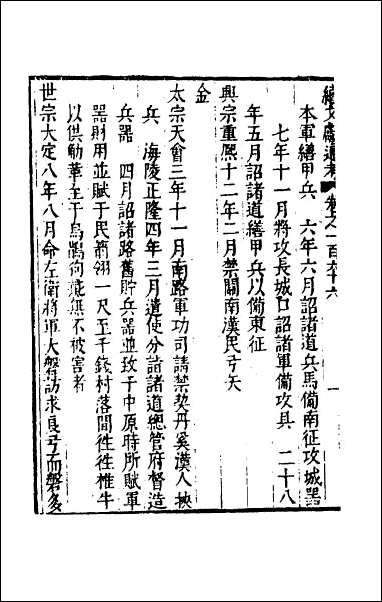 續文獻通考 卷之一百六十六
本軍繕甲兵　六年六月詔諸道兵馬備南征攻城器
七年十一月將攻長城口詔諸軍備攻具　二十八
年五月詔諸道繕甲兵以備東征
興宗重熙十二年二月禁關南漢民弓矢
金
太宗天會三年十一月南路軍功司請禁契丹奚漢人挾
兵　海陵正隆四年三月遣使分詣諸道總管府督造
兵器　四月詔諸路舊貯兵器並致于中原時所賦軍
器財用並賦于民箭翎一尺至千錢村落間徃徃椎牛
以供觔革至于烏鵲狗彘無不被害者
世宗大定八年八月命左衛將軍大磐訪求良弓而磐多